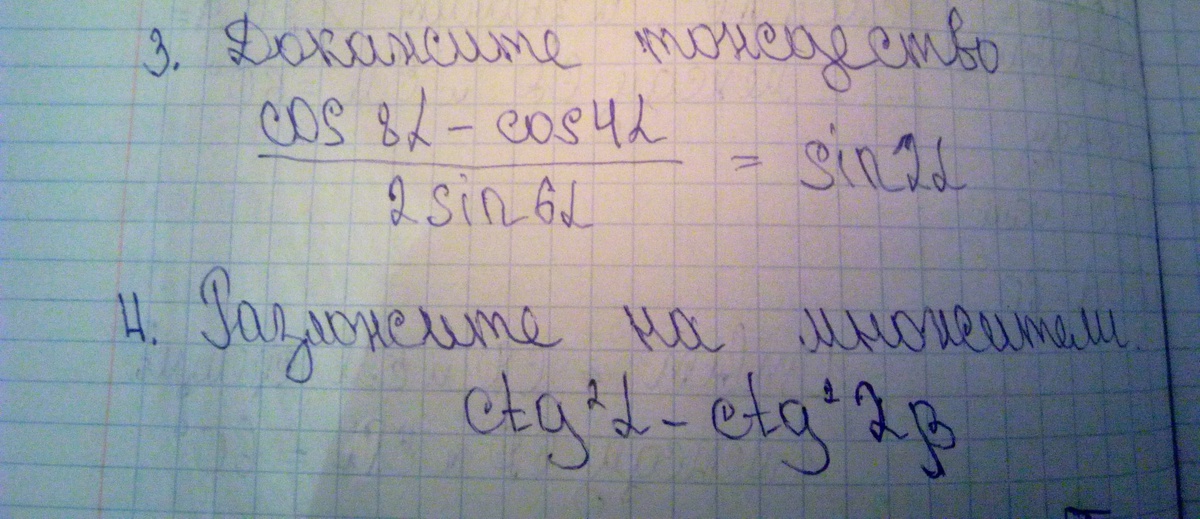 3. Докажите тождество
cos 8α - cos 4α
= sin 2α
2 sin 6α
4. Разложите на множители.
ctg² α - ctg² 2β